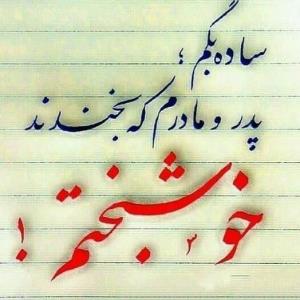 ساده بگم ؛
پدر و مادرم که بخندند
خوشبختم !